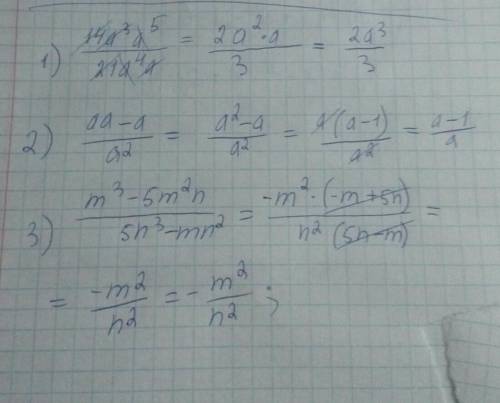 1) 14a³a⁵/21a⁴a = 2a²·a/3 = 2a³/3
2) aa-a/a² = a²-a/a² = a(a-1)/a² = a-1/a
3) m³-5m²n/5n³-mn² = -m²·(-m+5n)/n²(5n-m) =
= -m²/n² = -m²/n²;